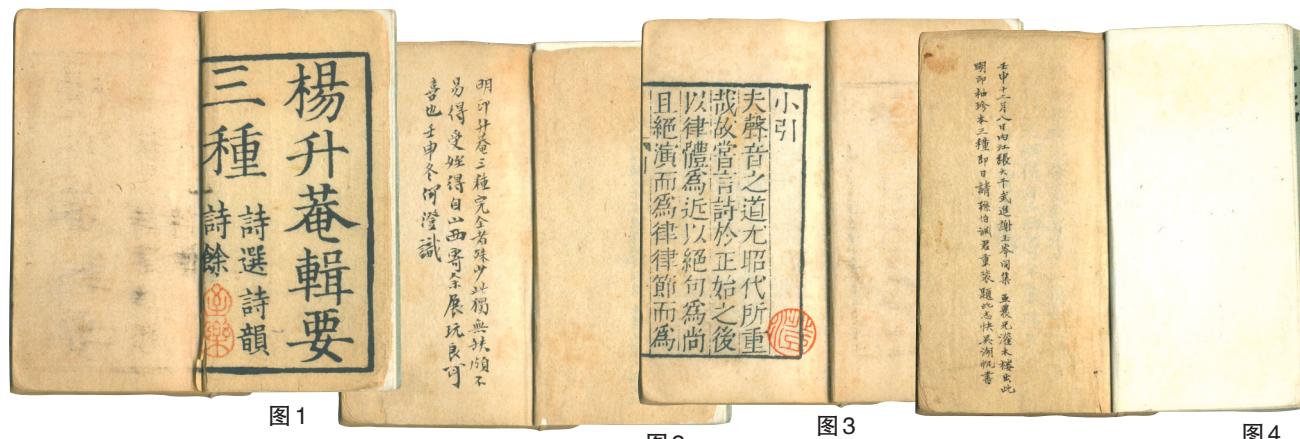 楊升菴輯要
三種
詩選 詩韻
詩餘
图1
明印升庵三種完全者殊少此獨無缺頗不
易得受姪得自山西寄余展玩良可
喜也壬申冬何澄識
图2
小引
夫聲音之道尤昭代所重
哉故嘗言詩於正始之後
以律體爲近以絕句爲尚
且絕演而爲律律節而爲
图3
壬申十二月八日内江張大千武進謝玉岑同集亞農兄灌木樓出此
明印袖珍本三種即日請孫伯淵君重裝題此志快吳湖帆書
图4